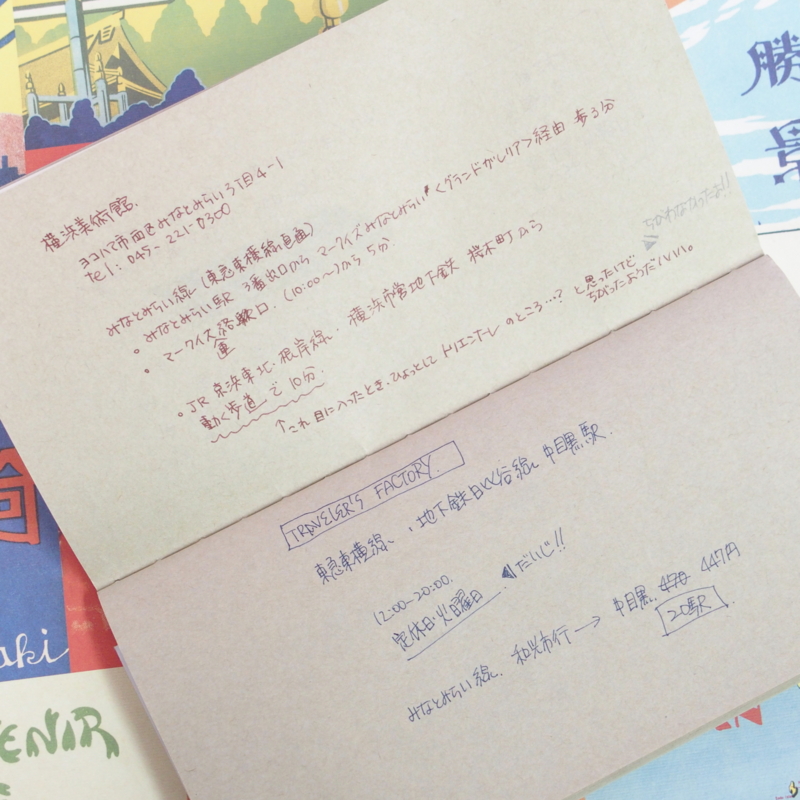 横浜美術館.
ヨコハマ市西区みなとみらい3丁目4-1
tel: 045-221-0300
みなとみらい線 (東急東横線直通)
・みなとみらい駅 3番出口から マークイズみなとみらい 〈グランドガレリア〉経由 歩3分
・マークイズ連絡口. (10:00〜)から 5分.
・JR 京浜東北・根岸線. 横浜市営地下鉄 桜木町から
動く歩道 で 10分.
↑これ目に入ったとき、ひょっとして トリエンナーレ のところ…? と思ったけど
ちがったようだ
TRAVELER'S FACTORY.
東急東横線. 地下鉄日比谷線 中目黒駅.
12:00-20:00.
定休日・火曜日 ◀だいじ!!
みなとみらい線. 和光市行→ 中目黒. 447円
20駅
勝
景
aki
ENIR